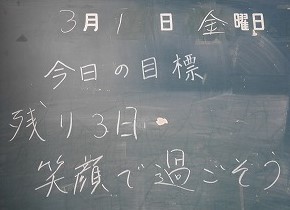 3月1日 金曜日
今日の目標
残り3日
笑顔で過ごそう